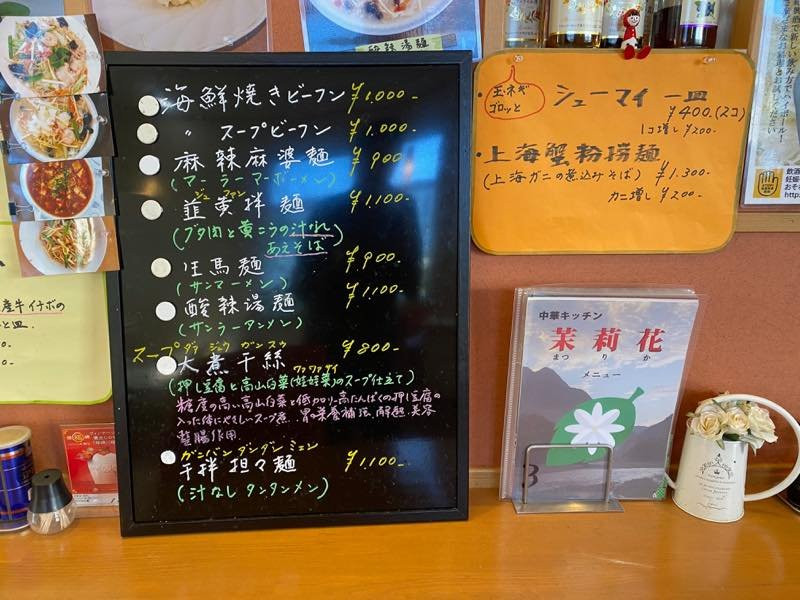 海鮮焼きビーフン ¥1,000-
〃 スープビーフン ¥1,000-
麻辣麻婆麺 ¥900-
(マーラーマーボーメン)
ジュ ファン
韮黄拌麺 ¥1,100-
(ブタ肉と黄ニラの汁なし
あえそば)
生馬麺 ¥900-
(サンマーメン)
酸辣湯麺 ¥1,100-
(サンラータンメン)
スープ ダァ ジュウ ガン スウ
大煮干絲 ¥800-
ワァワァサイ
(押し豆腐と高山白菜(娃娃菜)のスープ仕立て)
糖度の高い高山白菜と低カロリー高たんぱくの押し豆腐の
入った体にやさしいスープ煮...胃の栄養補法、解熱、美容
整腸作用
ガンバン ダンダン ミェン
干拌担々麺 ¥1,100-
(汁なしタンタンメン)
玉ネギ
ゴロッと
・シューマイ 一皿
¥400.(2コ)
1コ増し ¥200.
・上海蟹粉撈麺
(上海ガニの煮込みそば) ¥1.300.
カニ増し ¥200.
中華キッチン
茉莉花
まつりか
メニュー
3
酸辣湯麺
産牛イチボの